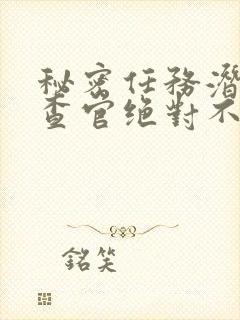 秘密任務潛
查官絕對不
銘笑